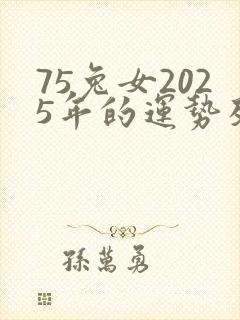 75兔女202
5年的運勢
孫萬勇